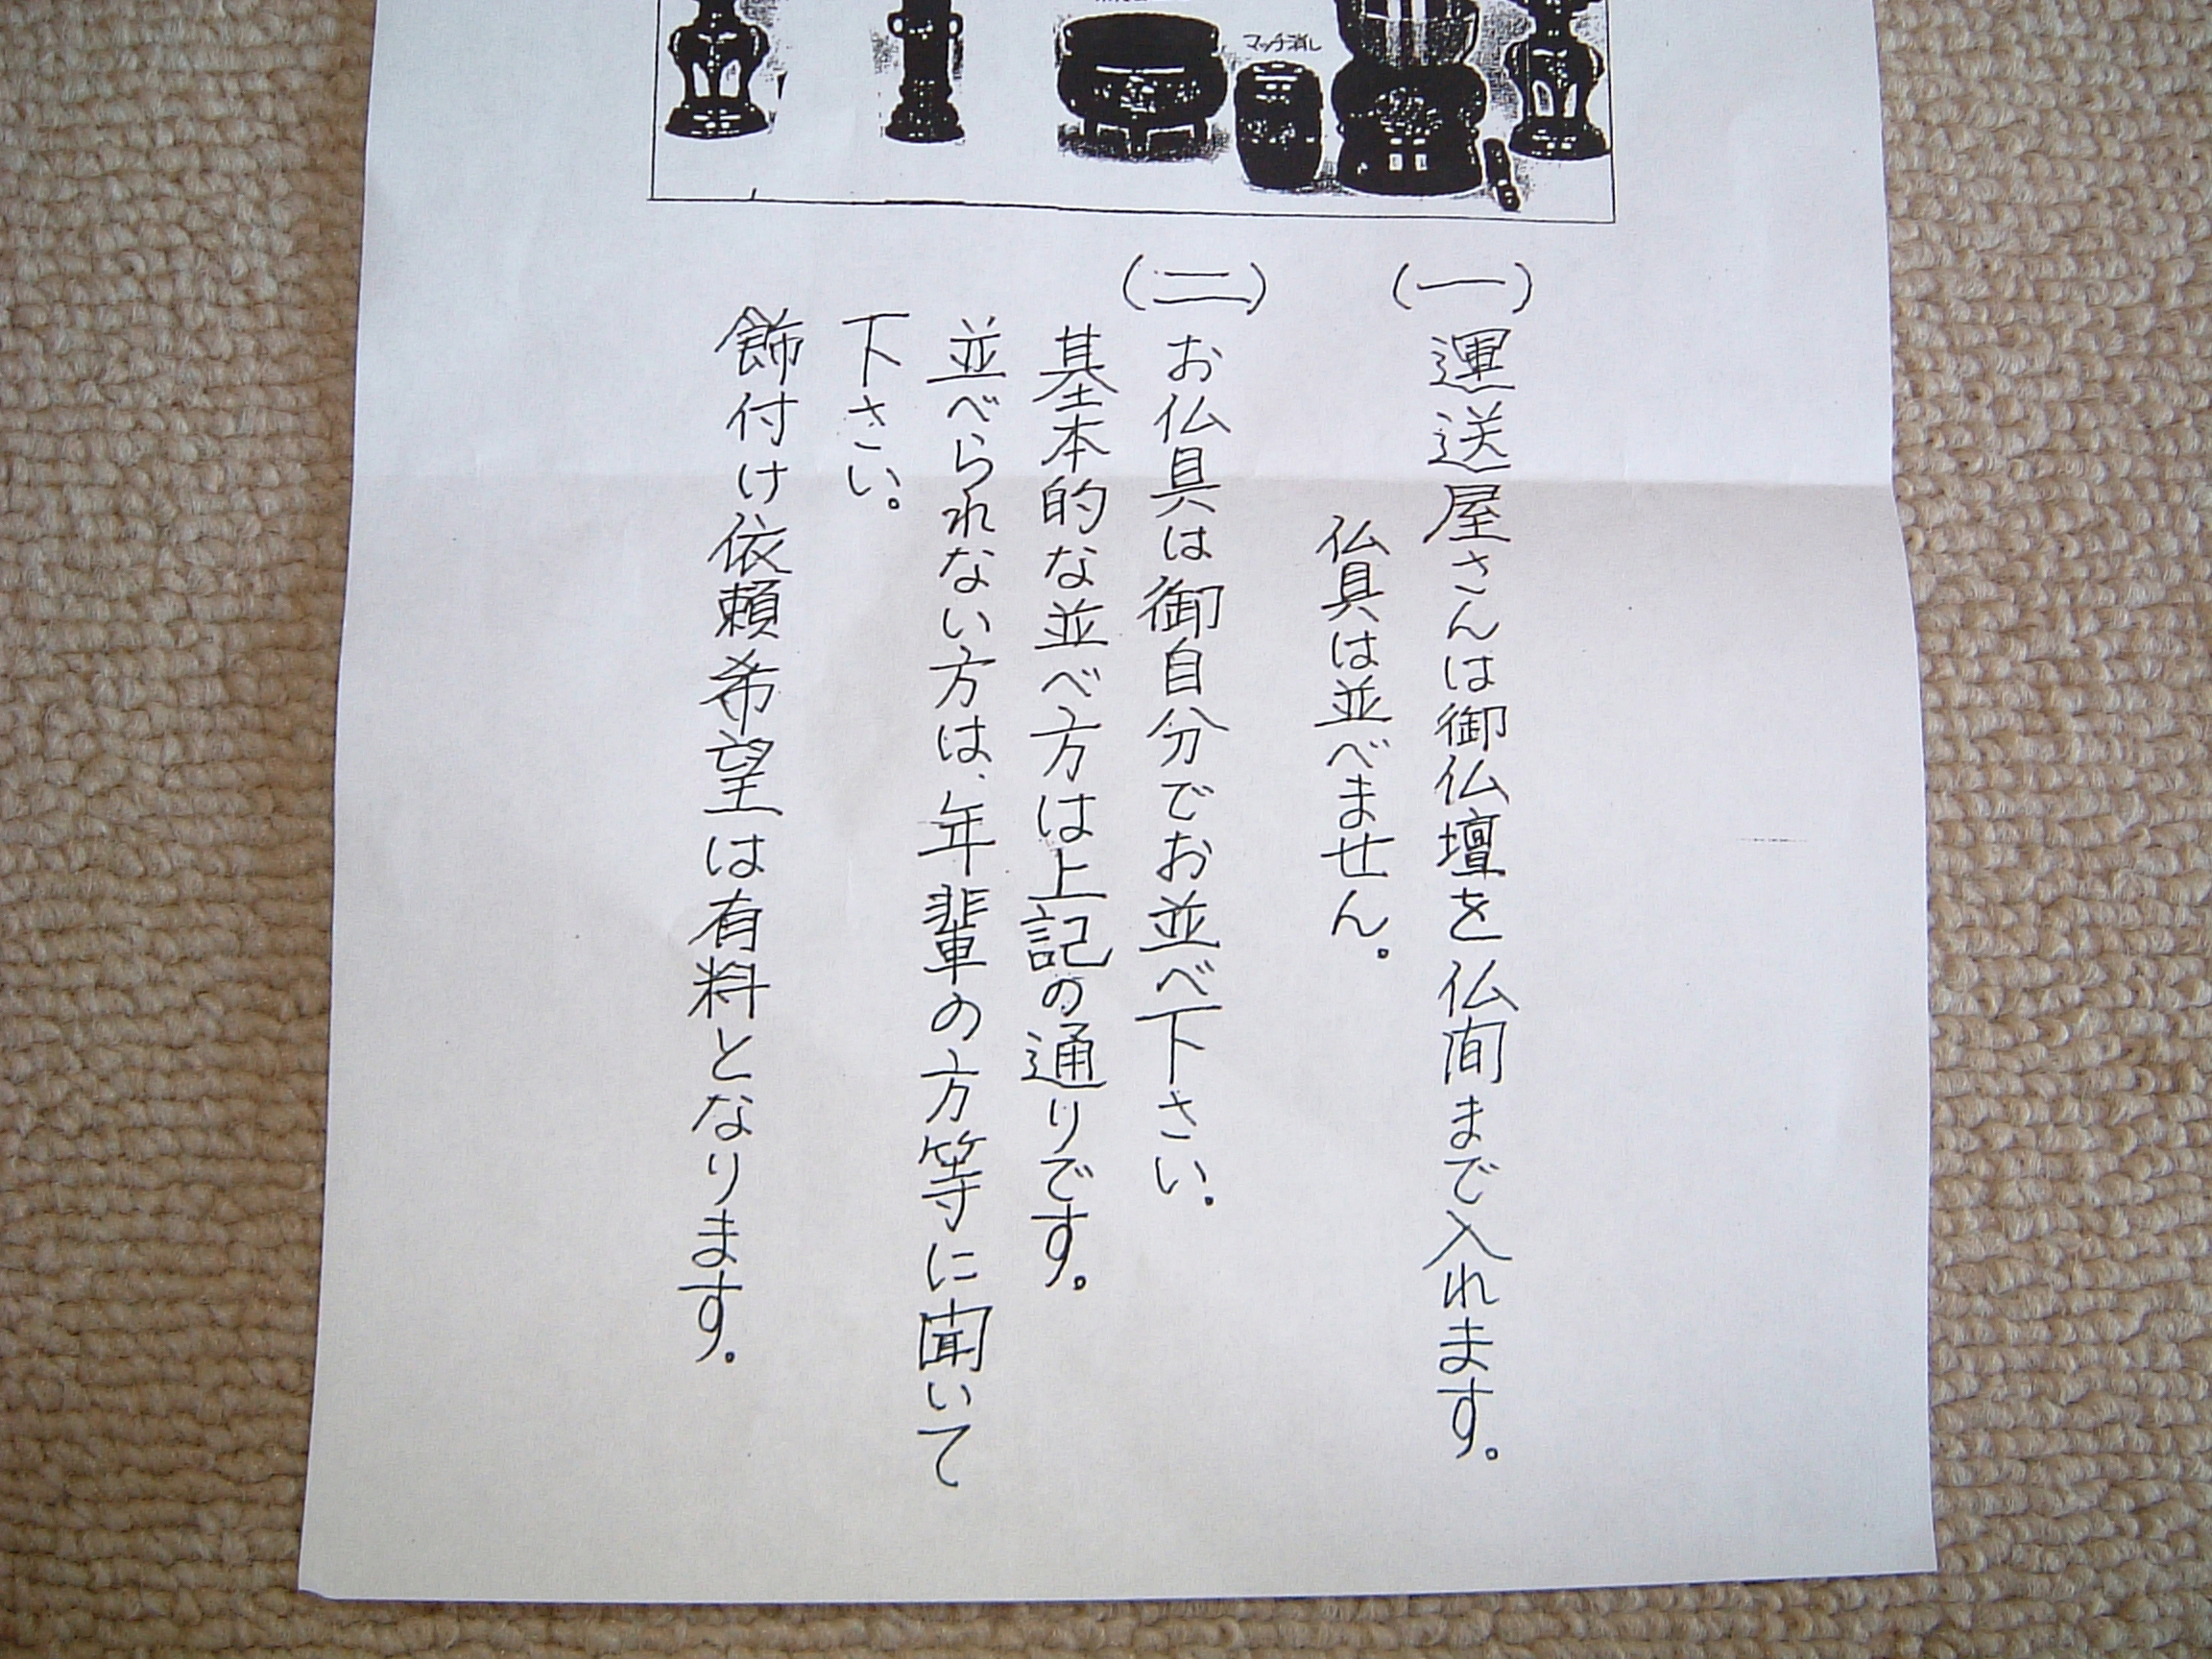 マッチ消し
(一)運送屋さんは御仏壇を仏間まで入れます。
仏具は並べません。
(二)お仏具は御自分でお並べ下さい。
基本的な並べ方は上記の通りです。
並べられない方は、年輩の方等に聞いて
下さい。
飾付け依頼希望は有料となります。